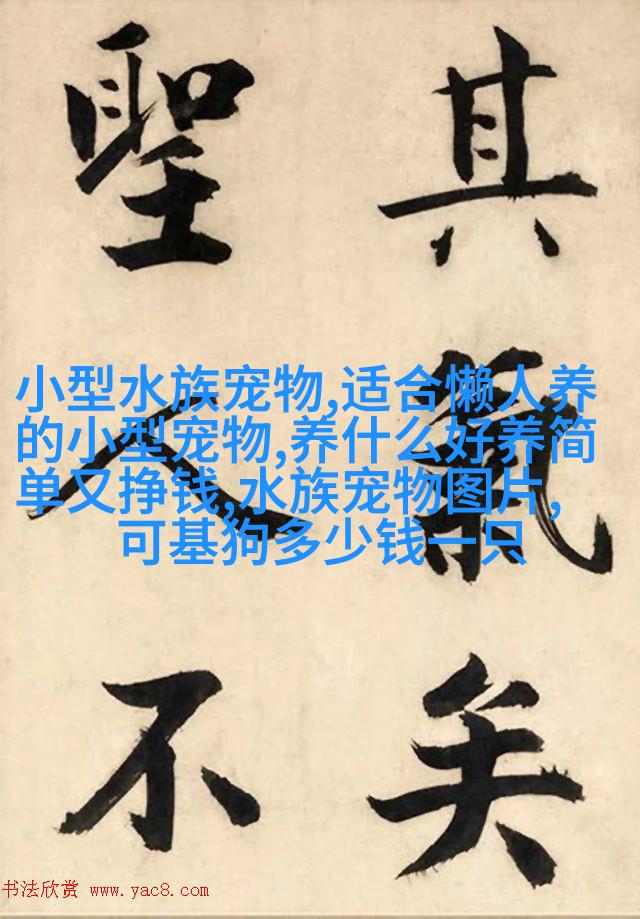 其氣矣
聖人不
小型水族宠物,适合懒人养
的小型宠物,养什么好养简
单又挣钱,水族宠物图片,
可基狗多少钱一只
书法欣赏 www.yac8.com